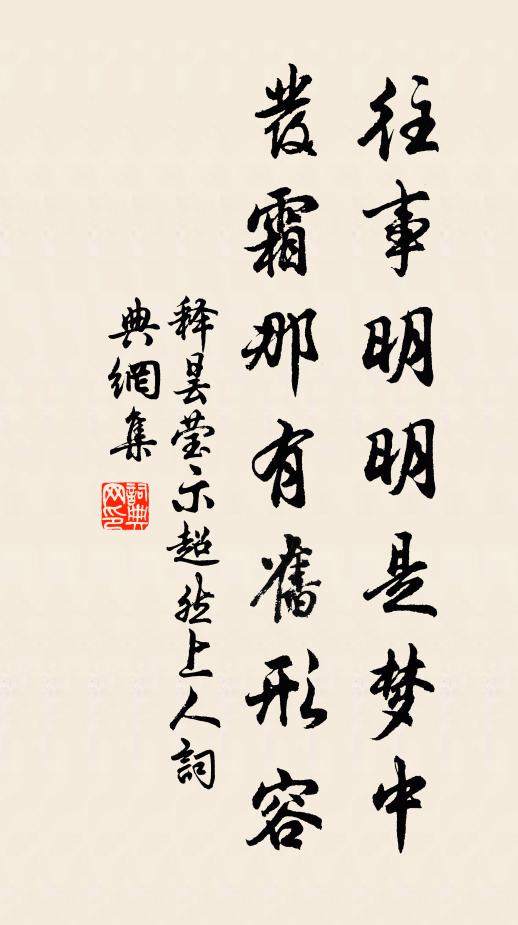 往事明明是梦中
发霜那有旧形容
释昙莹示超然上人詞
典網集
詞典网印